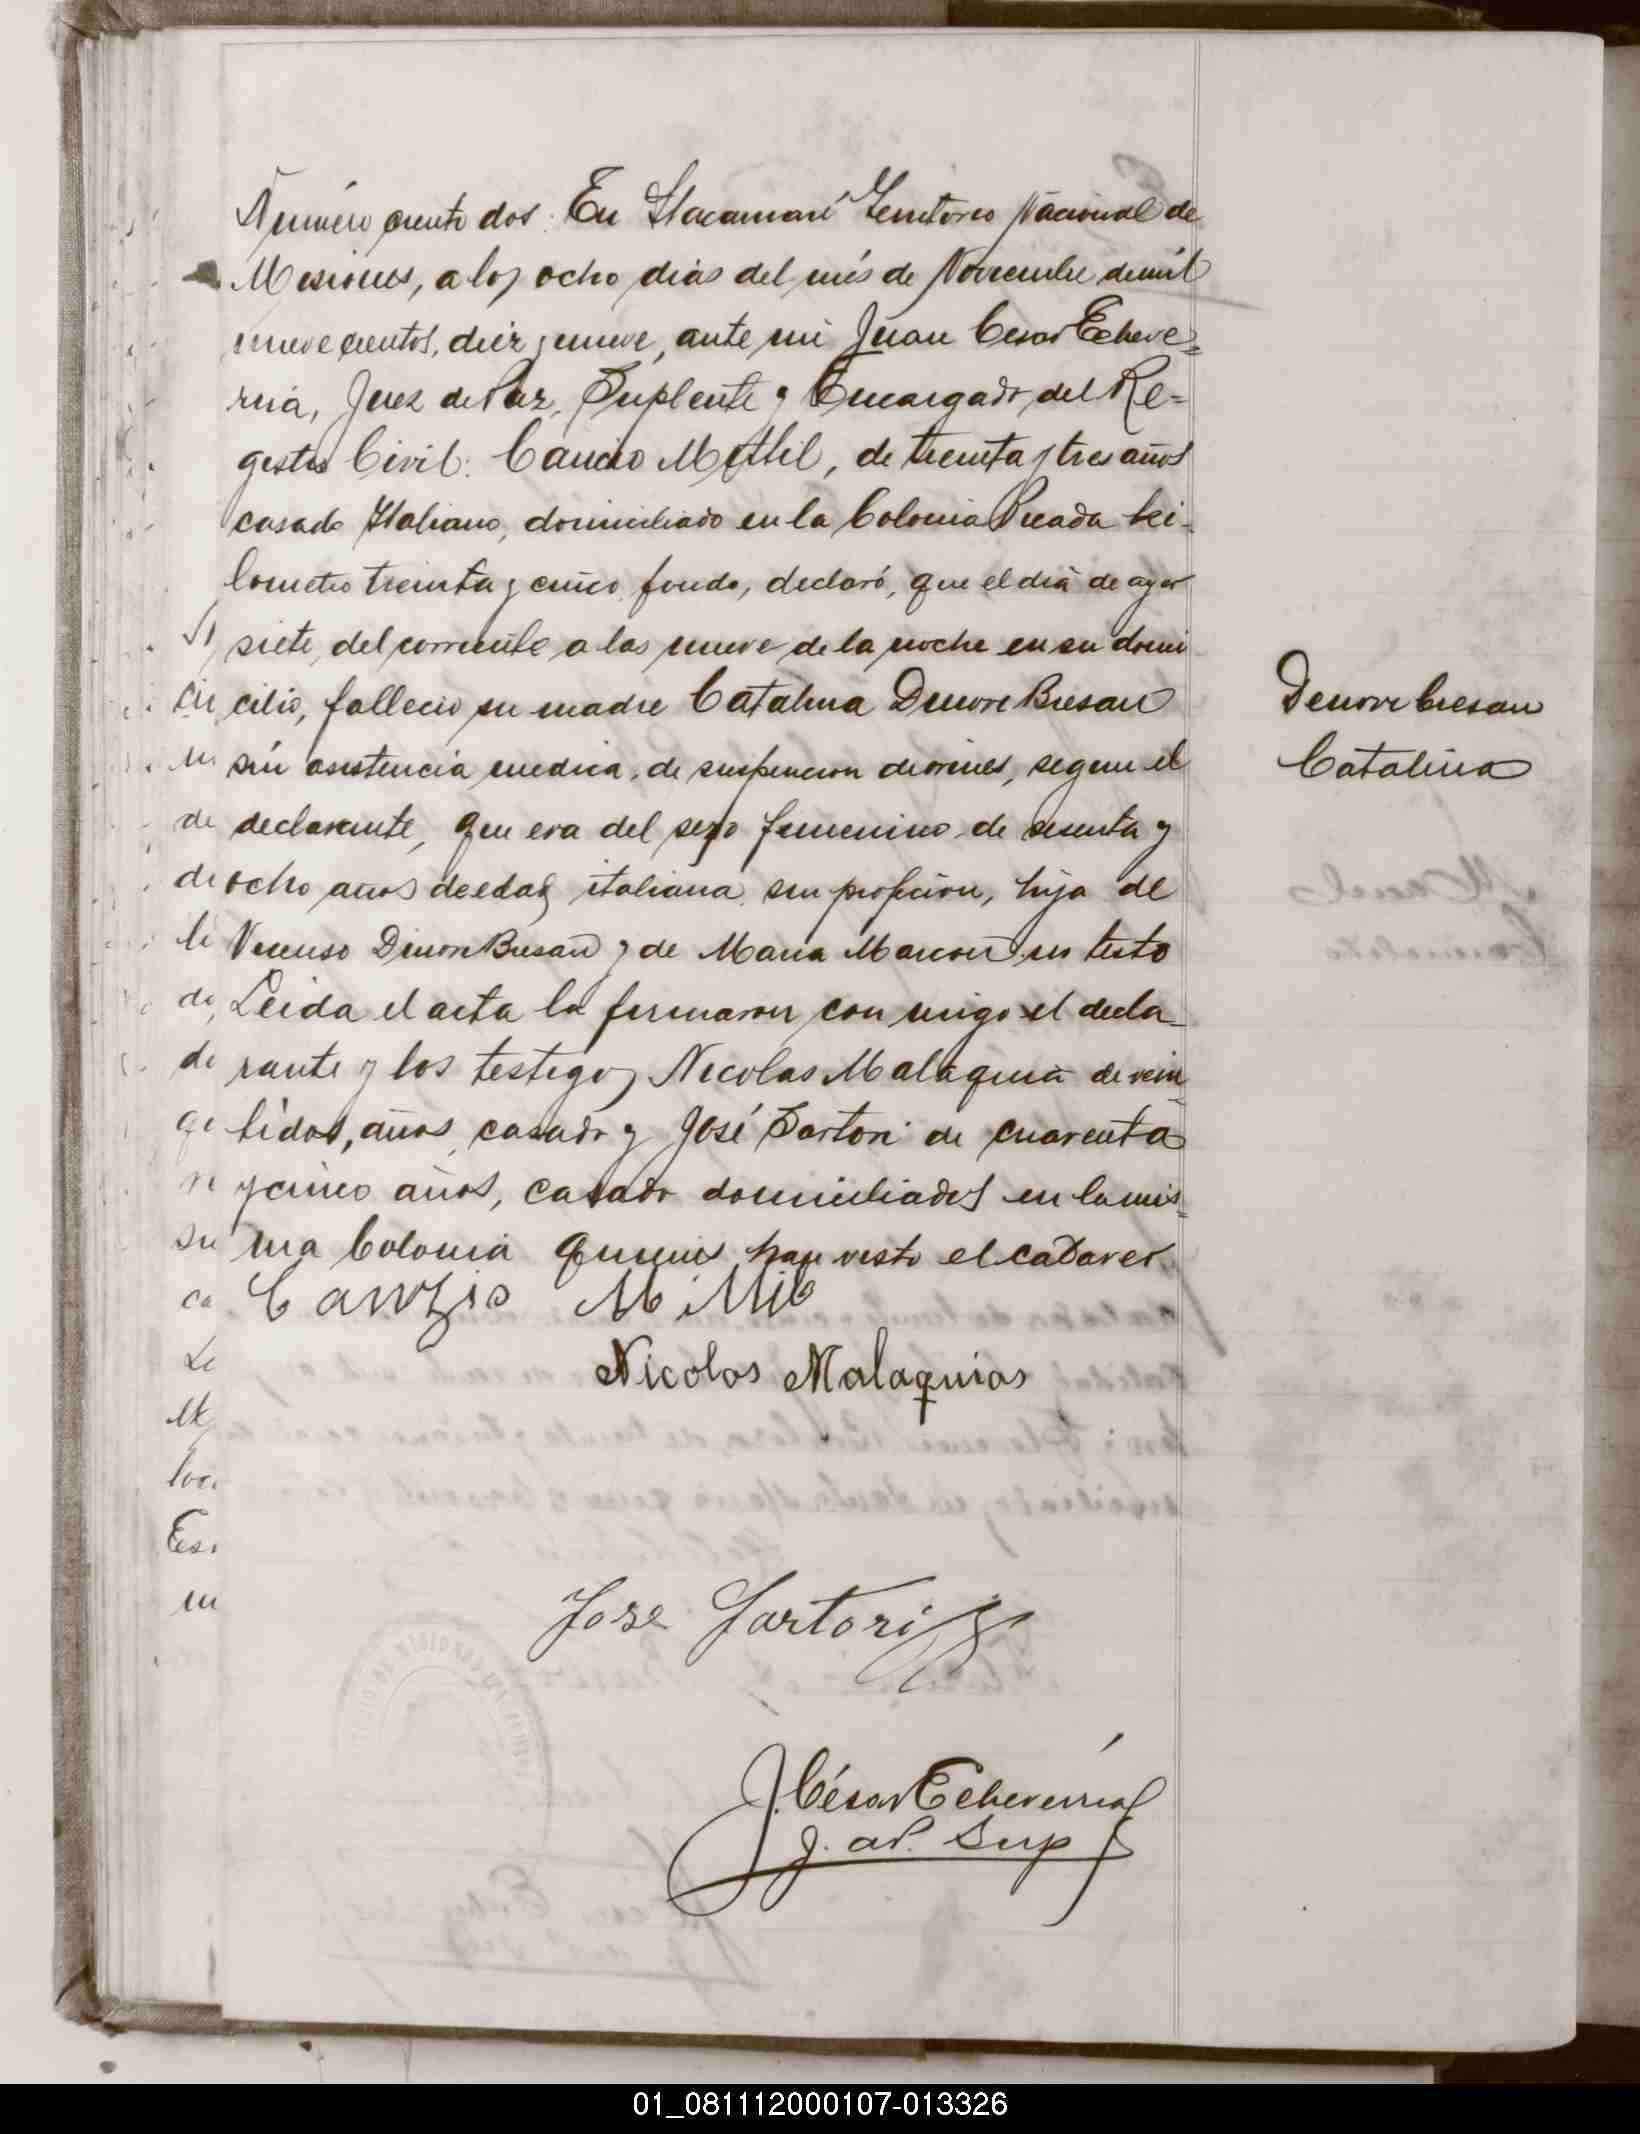 Número ciento dos. En Itacaruaré Territorio Nacional de
Misiones, a los ocho dias del més de Noviembre de mil
nuevecientos, diez y nueve, ante mi Juan Cesar Echeve=
rria, Juez de Paz, Suplente y Encargado, del Re=
gistro Civil: Cancio Mittil, de treinta y tres años
casado Italiano, domiciliado en la Colonia Picada ki-
lometro treinta y cinco fondo, declaró, que el dia de ayer
siete, del corriente a las nueve de la noche en su domi
cilio, fallecio su madre Catalina Denore Bresan
sin asistencia medica, de suspencion de orines, segun el
declarante, que era del sexo femenino de sesenta y
ocho años de edad italiana, sin profecion, hija de
Vicenso Denore Bresan y de Maria Marcon sin testo
Leida el acta la firmaron con migo el decla-
rante y los testigos Nicolas Malaquia de vein
tidos, años, casado y José Sartori de cuarenta
y cinco años, casado domiciliados en la mis=
ma Colonia quienes han visto el cadaver
Nicolas Malaquias
Jose Sartori
J. César Echeverria
J. de P. Sup
Denore Bresan
Catalina
01_081112000107-013326